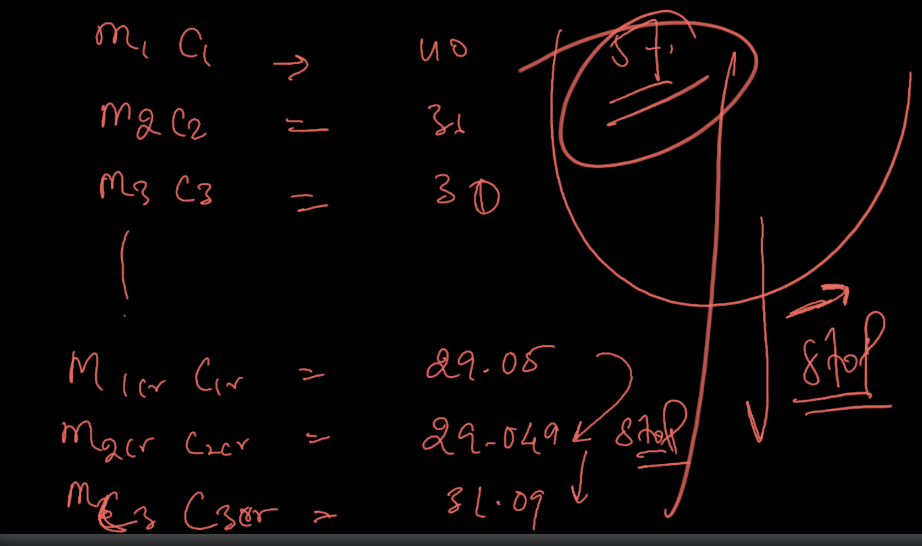 m1 C1 → 40
m2 C2 = 31
m3 C3 = 30
M1cr C1r = 29.05
M2cr C2cr = 29.049 stop
C3 C3cr = 31.09
St.
stop